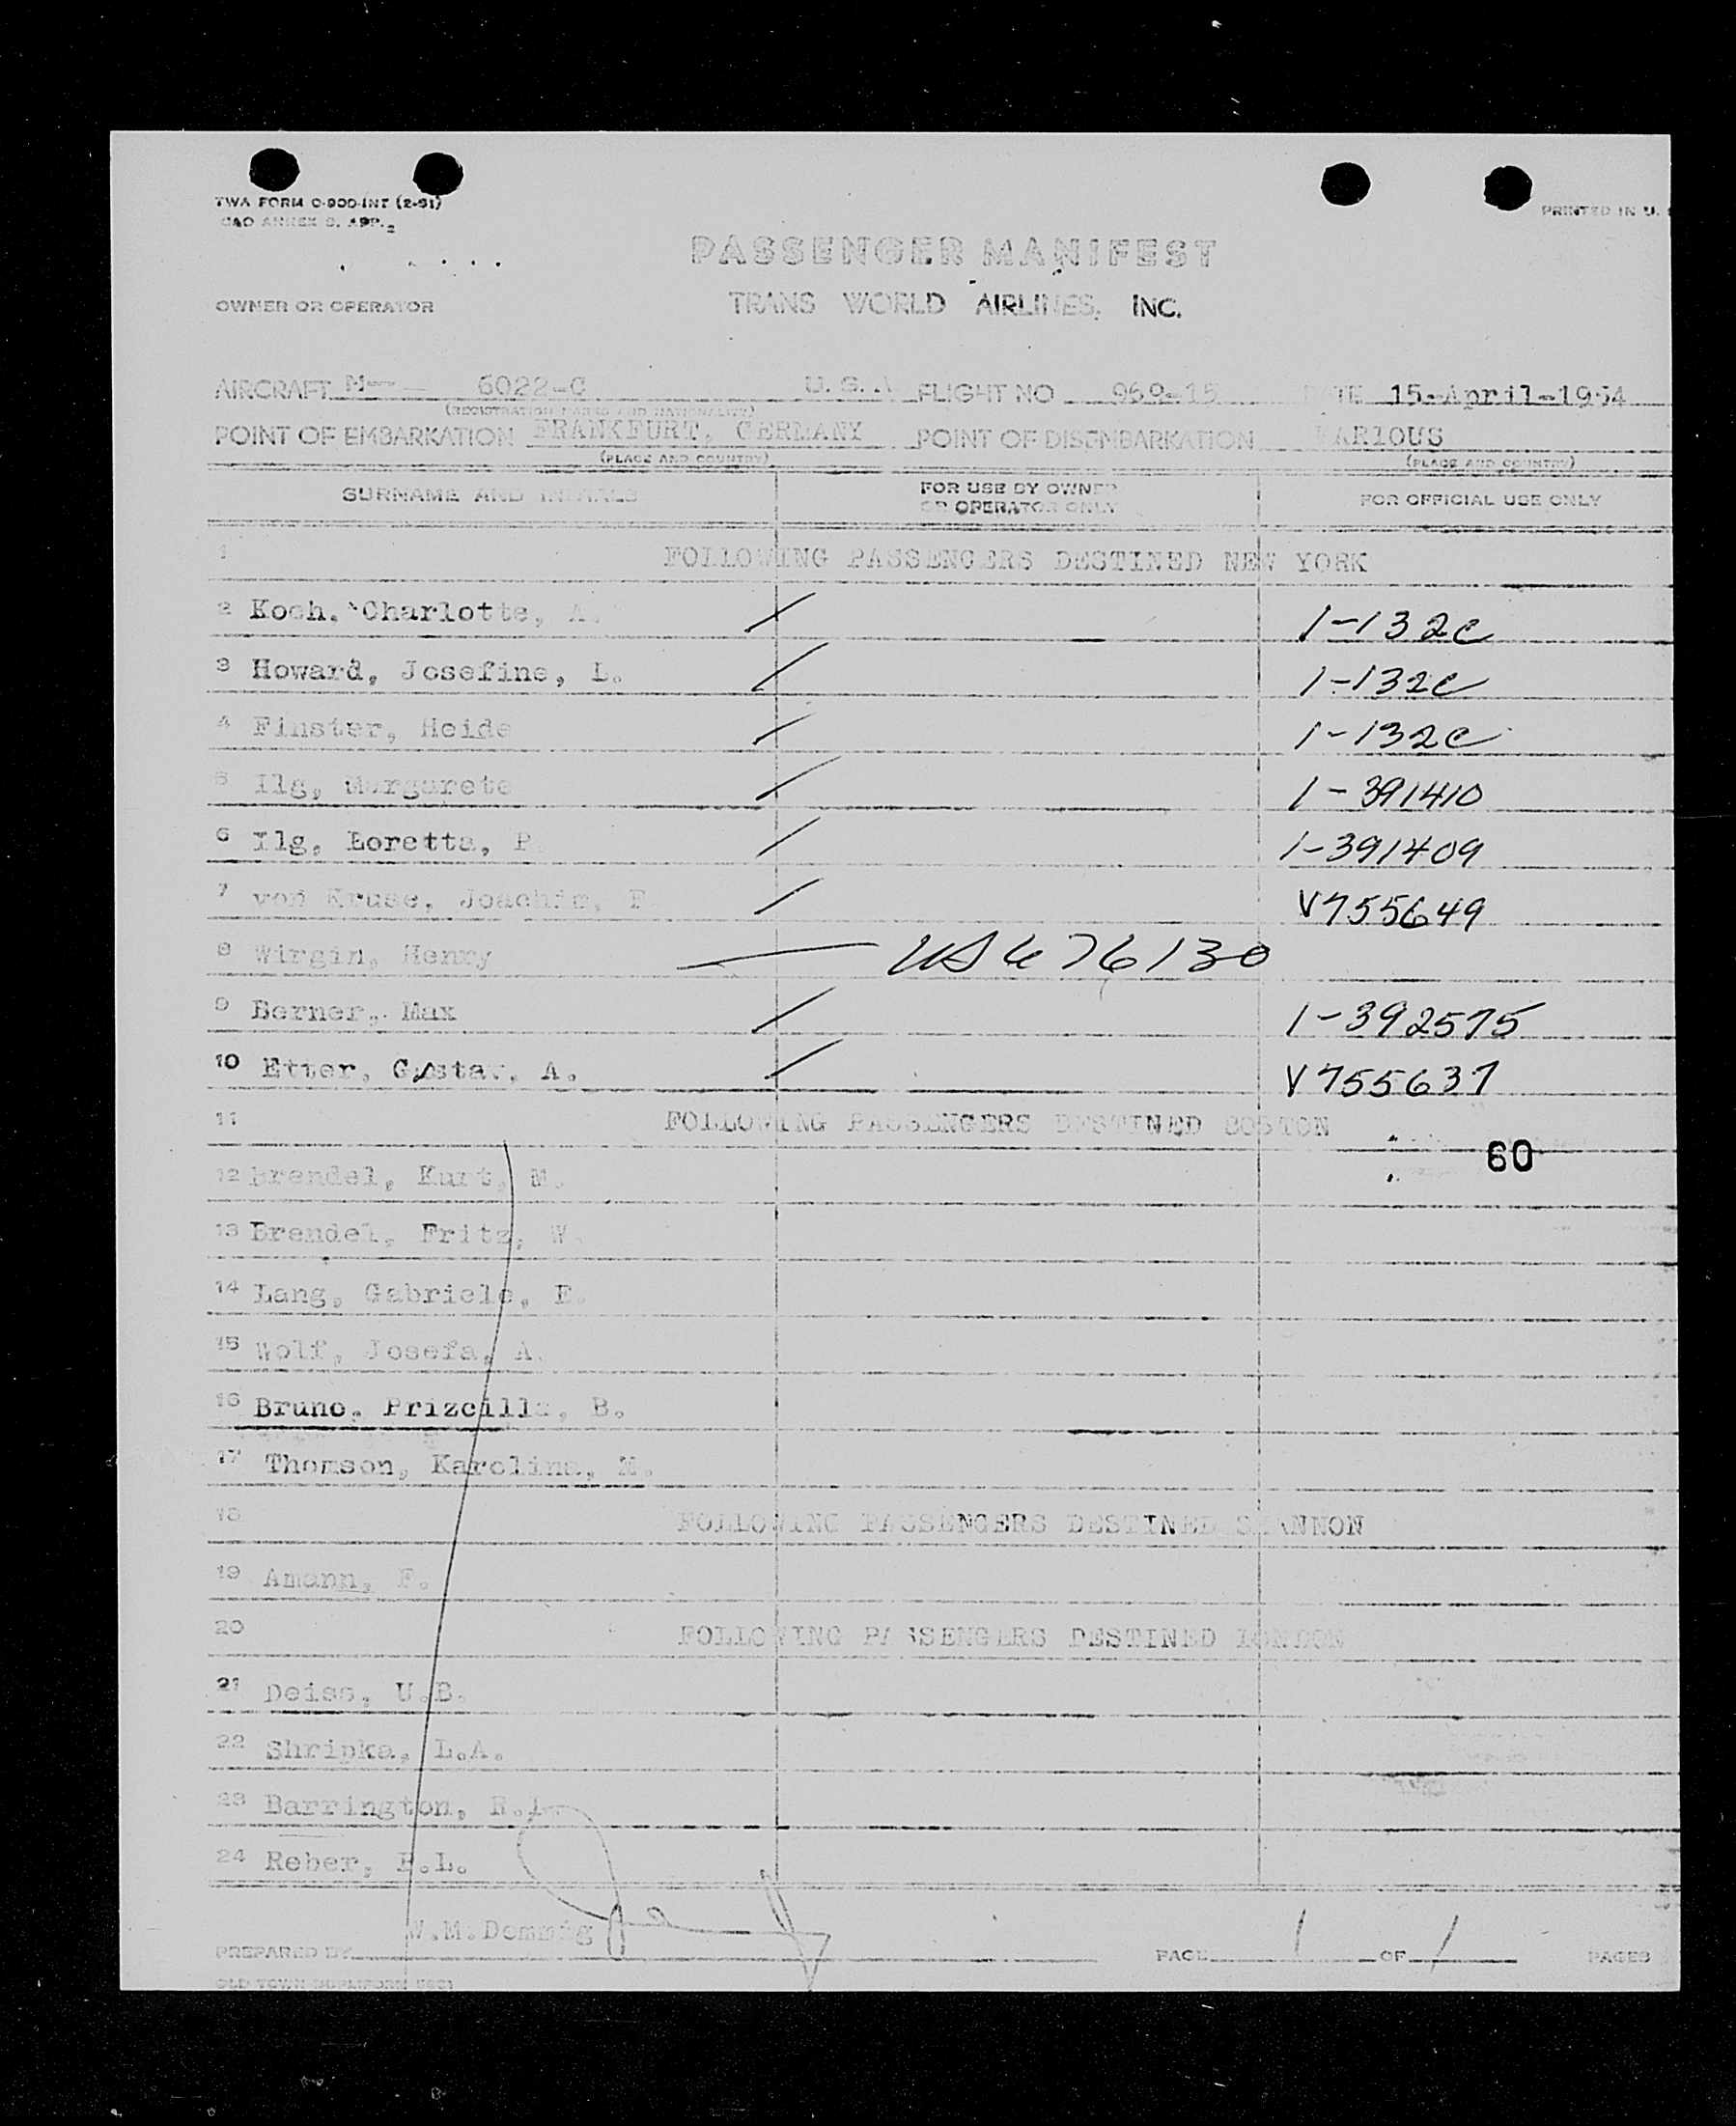 TWA FORM O-900-INT (2-51)
CAO ANNEX 9. APP. 2
PRINTED IN U.
PASSENGER MANIFEST
OWNER OR OPERATOR TRANS WORLD AIRLINES, INC.
AIRCRAFT N 6022-C U.S.A FLIGHT NO 960-15 DATE 15-April-1954
(REGISTRATION MARKS AND NATIONALITY)
POINT OF EMBARKATION FRANKFURT, GERMANY POINT OF DISEMBARKATION VARIOUS
(PLACE AND COUNTRY) (PLACE AND COUNTRY)
SURNAME AND INITIALS FOR USE BY OWNER OR OPERATOR ONLY FOR OFFICIAL USE ONLY
1 FOLLOWING PASSENGERS DESTINED NEW YORK
2 Koch, Charlotte, A. / 1-132c
3 Howard, Josefine, L. / 1-132c
4 Finster, Heide / 1-132c
5 Ilg, Margarete / 1-391410
6 Ilg, Loretta, P / 1-391409
7 von Kruse, Joachim, F / V755649
8 Wirgin, Henry — US 676130
9 Berner, Max / 1-392575
10 Etter, Gustav, A. / V755637
11 FOLLOWING PASSENGERS DESTINED BOSTON
60
12 Brendel, Kurt, M.
13 Brendel, Fritz, W.
14 Lang, Gabriele, E.
15 Wolf, Josefa, A.
16 Bruno, Prizcilla, B.
17 Thomson, Karolina, M.
18 FOLLOWING PASSENGERS DESTINED SHANNON
19 Amann, F.
20 FOLLOWING PASSENGERS DESTINED LONDON
21 Deiss, U.B.
22 Shripka, L.A.
23 Barrington, R.
24 Reber, P.L.
PREPARED BY W.M.Demmig PAGE 1 OF 1 PAGES
OLD TOWN DUPLIFORM